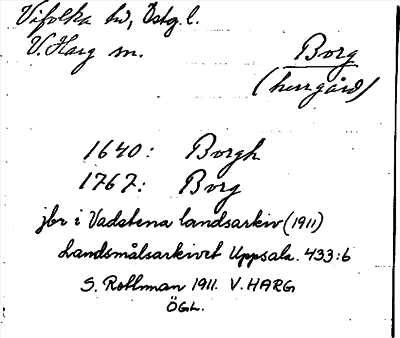 Vifolka hd, Östg. l.
V. Harg sn.
Borg
(herrgård)
1640: Borgh
1767: Borg
jbr i Vadstena landsarkiv (1911)
Landsmålsarkivet Uppsala. 433:6
S. Rothman 1911. V. HARG
ÖGL.